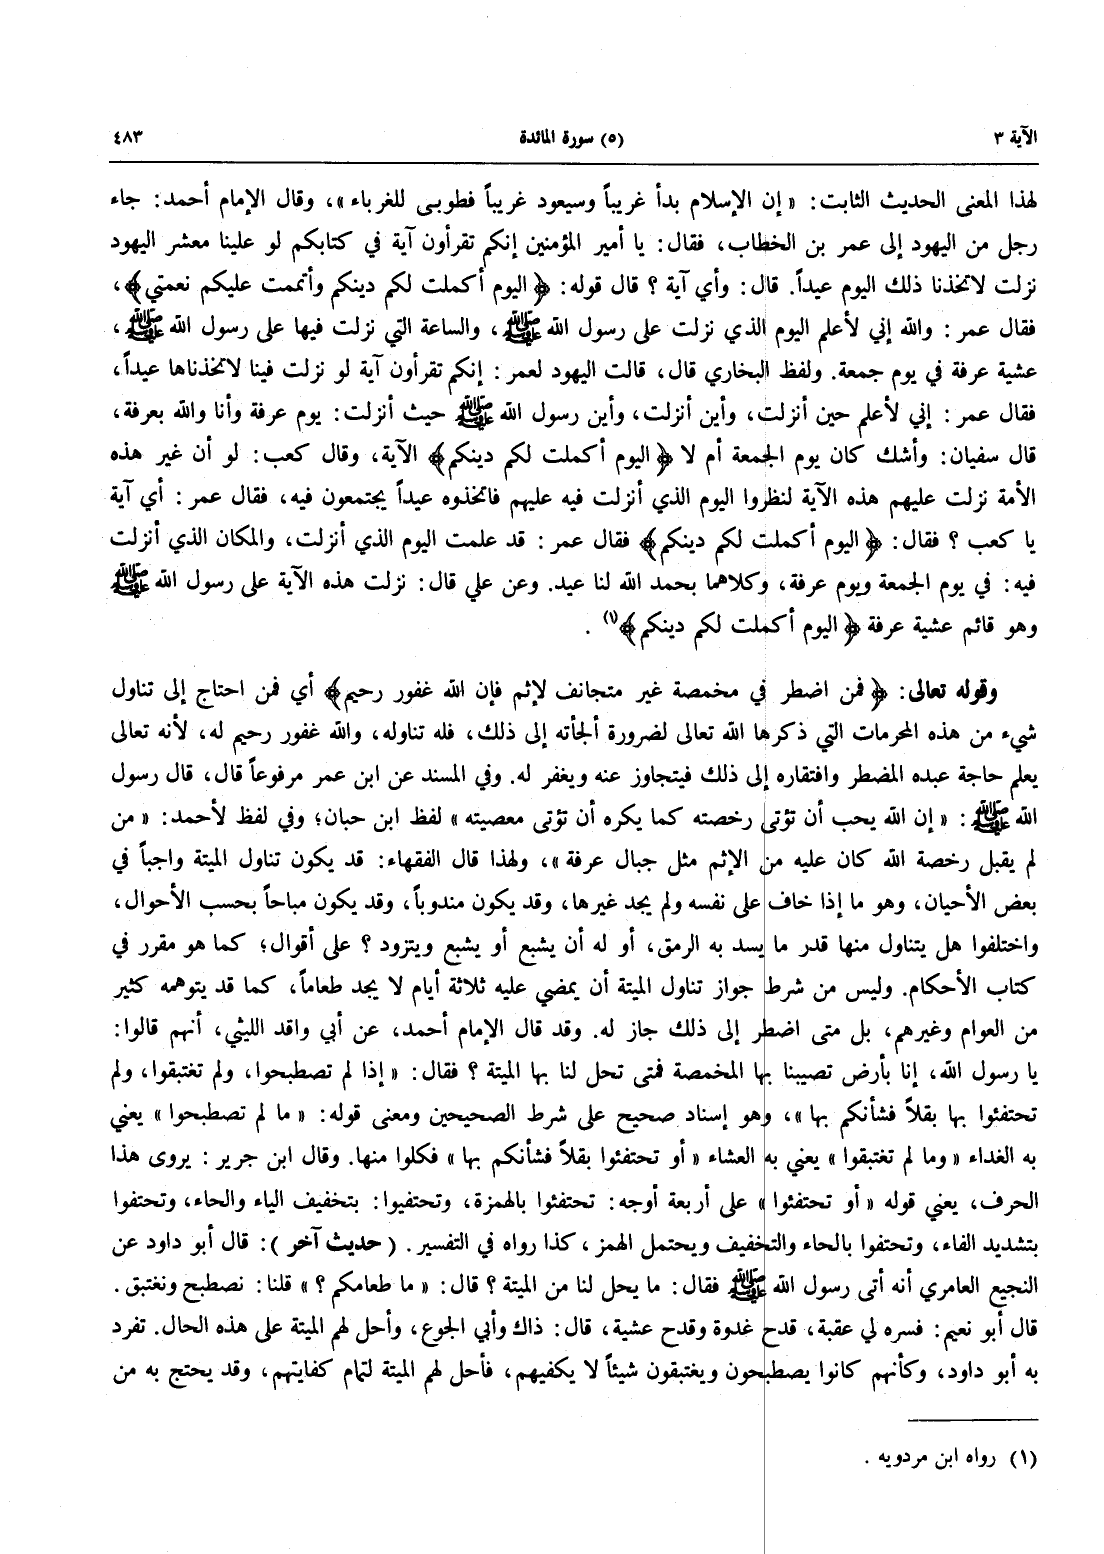 الآية ٣
(٥) سورة المائدة
٤٨٣
لهذا المعنى الحديث الثابت: «إن الإسلام بدأ غريباً وسيعود غريباً فطوبى للغرباء»، وقال الإمام أحمد: جاء
رجل من اليهود إلى عمر بن الخطاب، فقال: يا أمير المؤمنين إنكم تقرأون آية في كتابكم لو علينا معشر اليهود
نزلت لاتخذنا ذلك اليوم عيداً. قال: وأي آية ؟ قال قوله: ﴿اليوم أكملت لكم دينكم وأتممت عليكم نعمتي﴾،
فقال عمر : والله إني لأعلم اليوم الذي نزلت على رسول الله ﷺ، والساعة التي نزلت فيها على رسول الله ﷺ،
عشية عرفة في يوم جمعة. ولفظ البخاري قال، قالت اليهود لعمر : إنكم تقرأون آية لو نزلت فينا لاتخذناها عيداً،
فقال عمر : إني لأعلم حين أنزلت، وأين أنزلت، وأين رسول الله ﷺ حيث أنزلت: يوم عرفة وأنا والله بعرفة،
قال سفيان: وأشك كان يوم الجمعة أم لا ﴿اليوم أكملت لكم دينكم﴾ الآية، وقال كعب: لو أن غير هذه
الأمة نزلت عليهم هذه الآية لنظروا اليوم الذي أنزلت فيه عليهم فاتخذوه عيداً يجتمعون فيه، فقال عمر : أي آية
يا كعب ؟ فقال: ﴿اليوم أكملت لكم دينكم﴾ فقال عمر : قد علمت اليوم الذي أنزلت، والمكان الذي أنزلت
فيه: في يوم الجمعة ويوم عرفة، وكلاهما بحمد الله لنا عيد. وعن علي قال: نزلت هذه الآية على رسول الله ﷺ
وهو قائم عشية عرفة ﴿اليوم أكملت لكم دينكم﴾(١) .
وقوله تعالى: ﴿فمن اضطر في مخمصة غير متجانف لإثم فإن الله غفور رحيم﴾ أي فمن احتاج إلى تناول
شيء من هذه المحرمات التي ذكرها الله تعالى لضرورة ألجأته إلى ذلك، فله تناوله، والله غفور رحيم له، لأنه تعالى
يعلم حاجة عبده المضطر وافتقاره إلى ذلك فيتجاوز عنه ويغفر له. وفي المسند عن ابن عمر مرفوعاً قال، قال رسول
الله ﷺ : «إن الله يحب أن تؤتى رخصته كما يكره أن تؤتى معصيته» لفظ ابن حبان؛ وفي لفظ لأحمد: «من
لم يقبل رخصة الله كان عليه من الإثم مثل جبال عرفة»، ولهذا قال الفقهاء: قد يكون تناول الميتة واجباً في
بعض الأحيان، وهو ما إذا خاف على نفسه ولم يجد غيرها، وقد يكون مندوباً، وقد يكون مباحاً بحسب الأحوال،
واختلفوا هل يتناول منها قدر ما يسد به الرمق، أو له أن يشبع أو يشبع ويتزود ؟ على أقوال؛ كما هو مقرر في
كتاب الأحكام. وليس من شرط جواز تناول الميتة أن يمضي عليه ثلاثة أيام لا يجد طعاماً، كما قد يتوهمه كثير
من العوام وغيرهم، بل متى اضطر إلى ذلك جاز له. وقد قال الإمام أحمد، عن أبي واقد الليثي، أنهم قالوا:
يا رسول الله، إنا بأرض تصيبنا بها المخمصة فمتى تحل لنا بها الميتة ؟ فقال: «إذا لم تصطبحوا، ولم تغتبقوا، ولم
تحتفئوا بها بقلاً فشأنكم بها»، وهو إسناد صحيح على شرط الصحيحين ومعنى قوله: «ما لم تصطبحوا» يعني
به الغداء «وما لم تغتبقوا» يعني به العشاء «أو تحتفئوا بقلاً فشأنكم بها» فكلوا منها. وقال ابن جرير : يروى هذا
الحرف، يعني قوله «أو تحتفئوا» على أربعة أوجه: تحتفئوا بالهمزة، وتحتفيوا: بتخفيف الياء والحاء، وتحتفوا
بتشديد الفاء، وتحتفوا بالحاء والتخفيف ويحتمل الهمز ، كذا رواه في التفسير . (حديث آخر ): قال أبو داود عن
النجيع العامري أنه أتى رسول الله ﷺ فقال: ما يحل لنا من الميتة ؟ قال: «ما طعامكم ؟» قلنا: نصطبح ونغتبق .
قال أبو نعيم: فسره لي عقبة، قدح غدوة وقدح عشية، قال: ذاك وأبي الجوع، وأحل لهم الميتة على هذه الحال. تفرد
به أبو داود، وكأنهم كانوا يصطبحون ويغتبقون شيئاً لا يكفيهم، فأحل لهم الميتة لتمام كفايتهم، وقد يحتج به من
(١) رواه ابن مردويه .